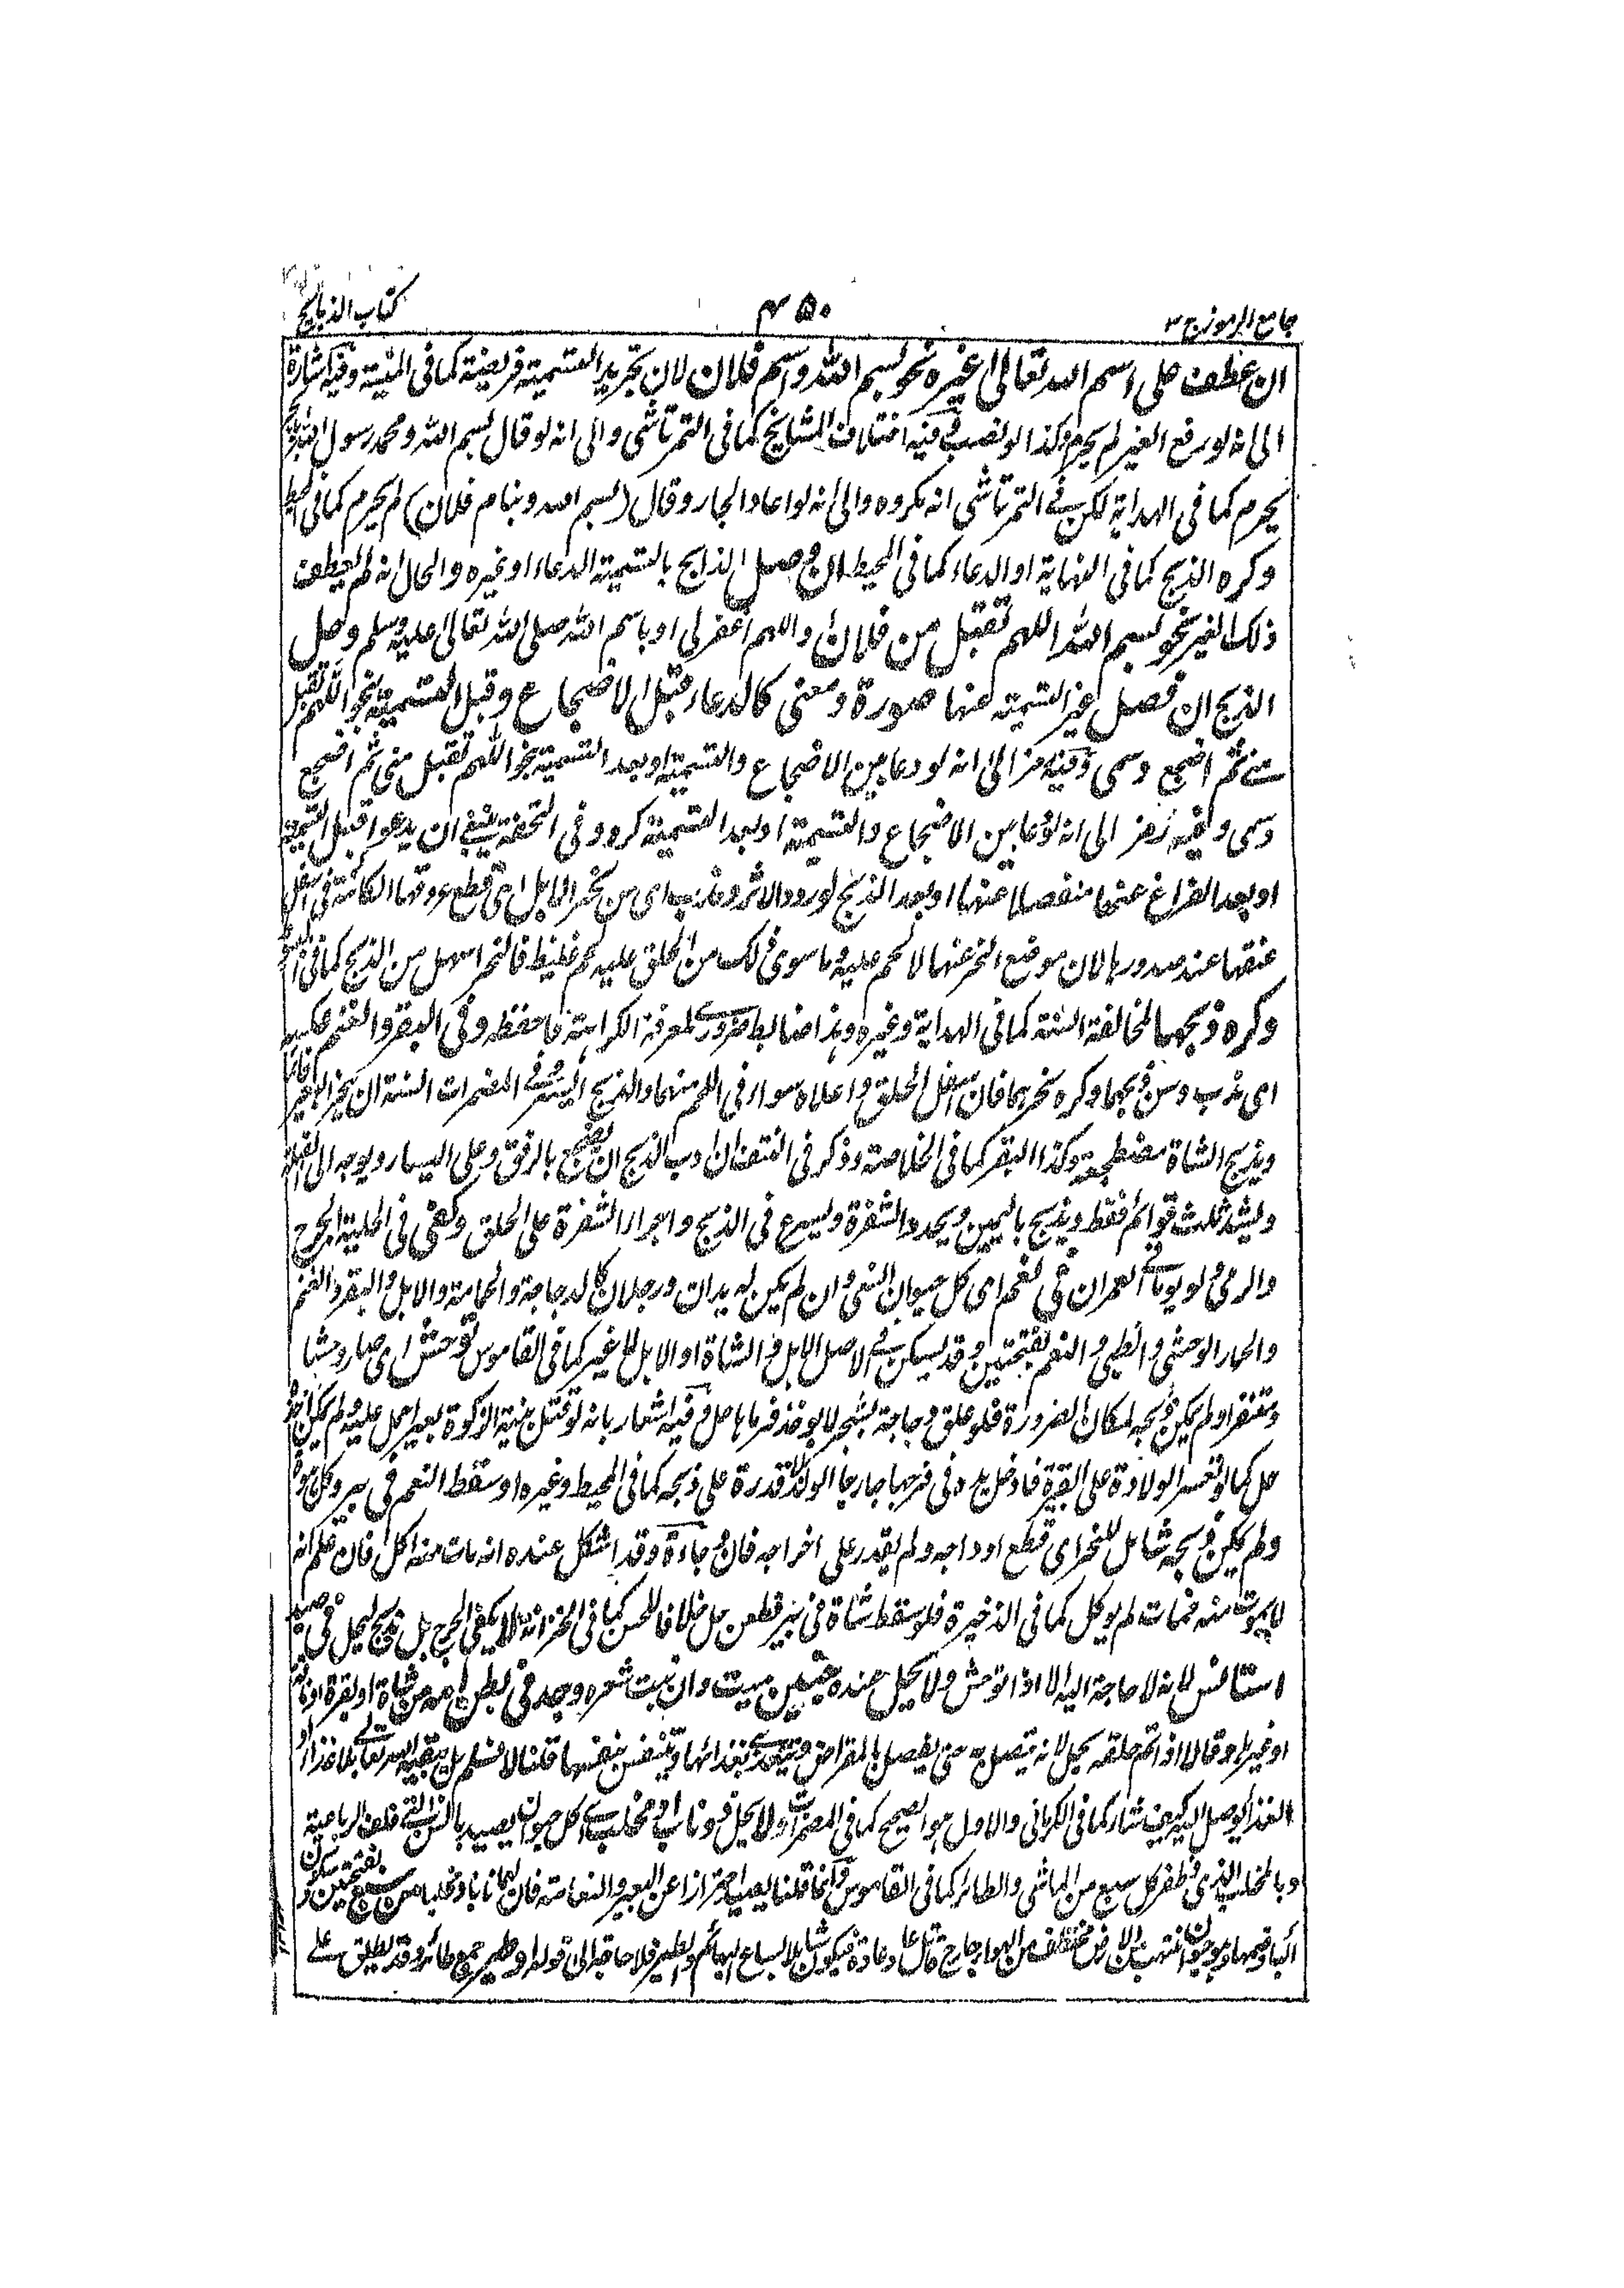 جامع الرموز ج ٣
٤٥٠
كتاب الذبائح
ان عطف على اسم الله تعالى غيره نحو بسم الله واسم فلان لان تجريد التسمية فريضة كما في المنية وفيه اشارة
الى انه لو رفع الغير لم يحرم وكذا لو نصب وفيه اختلاف المشايخ كما في التمرتاشي والى انه لو قال بسم الله ومحمد رسول الله
يحرم كما في الهداية لكن في التمرتاشي انه مكروه والى انه لو اعاد الجار وقال (بسم الله وبنام فلان) لم يحرم كما في المحيط
وكره الذبح كما في النهاية او الدعاء كما في المحيط ان وصل الذابح بالتسمية الدعاء او غيره والحال انه لم يعطف
ذلك الغير نحو بسم الله اللهم تقبل من فلان واللهم اغفر لى او باسم الله صلى الله تعالى عليه وسلم وحل
الذبح ان فصل غير التسمية عنها صورة ومعنى كالدعاء قبل الاضجاع وقبل التسمية نحو اللهم تقبل
منى ثم اضجع وسمى وفيه رمز الى انه لو دعا بين الاضجاع والتسمية او بعد التسمية نحو اللهم تقبل منى ثم اضجع
وسمى وفيه رمز الى انه لو دعا بين الاضجاع والتسمية او بعد التسمية كره وفى التحفة ينبغى ان يدعوا قبل التسمية
او بعد الفراغ عنها منفصلا عنها او بعد الذبح لورود الاثر وندب اى سن نحر الابل اى قطع عروقها الكائنة في اسفل
عنقها عند صدورها لان موضع النحر عنها لا لحم عليه وما سوى ذلك من الحلق عليه لحم غليظ فالنحر اسهل من الذبح كما في
وكره ذبحها لمخالفة السنة كما في الهداية وغيره وهذا ضابط ضرورى لمعرفة الكراهة فاحفظه وفي البقر والغنم عكسه
اى ندب وسن ذبحهما وكره نحرهما فان اسفل الحلق واعلاه سواء في اللحم منهما والذبح ايسر وفي المضمرات السنة ان ينحر البعير قائما
ويذبح الشاة مضطجعة وكذا البقر كما في الخلاصة وذكر في النتف ان ادب الذبح ان يضجع بالرفق وعلى اليسار ويوجه الى القبلة
ويشد ثلث قوائم فقط ويذبح باليمين ويحدد الشفرة ويسرع في الذبح واجراء الشفرة على الحلق وكفى في الحلية الجرح
والرمى ولو يوما في العمران في نعم اى كل حيوان انسى وان لم يكن له يدان ورجلان كالدجاجة والحمامة والابل والبقر والغنم
والحمار الوحشى والظبى و النعم بفتحتين وقد يسكن في الاصل الابل والشاة او الابل لا غير كما في القاموس توحش اى صار وحشا
ومتنفرا ولم يمكن ذبحه لمكان الضرورة فلو علق دجاجة بشجر لا يوخذ فرماها حل وفيه اشعار بانه لو قتل بنية الذكوة بعيرا حمل عليه ولم يمكن اخذه
حل كما لو تعسر الولادة على البقرة فادخل يده في فرجها جارحا الولد لا قدرة على ذبحه كما في المحيط وغيره او سقط النعم في بير
ولم يمكن ذبحه شامل للنحر اى قطع اوداجه ولم يقدر على اخراجه فان وجاءه وقد اشكل عنده انه مات منه اكل فان علم انه
لا يموت منه فمات لم يوكل كما في الذخيرة فلو سقط شاة في بير فطعن حل خلافا للحسن كما في الخزانة لا يكفى الجرح بل ذبح ليحل في صيد
استانس لانه لا حاجة اليه الا اذا توحش ولا يحل عنده جنين ميت وان نبت شعره وجد في بطن امه من شاة او بقرة او ناقة
او غيرها وقالا اذا تم خلقه يحل لانه متصل به حتى يفصل بالمقراض ويتغذى بغذائها ويتنفس بنفسها قلنا لا نسلم بل يبقيه الله تعالى بلا غذاء او
الغذاء يوصل اليه كيف شاء كما في الكرمانى والاول هو الصحيح كما في المضمرات ولا يحل ذو ناب او مخلب اى كل حيوان يصيد بالسن التى خلف الرباعية
وبالمخلب الذى ظفر كل سبع من الماشى والطائر كما في القاموس وانما قلنا يصيد احترازا عن البعير والنعامة فان لهما نابا ومخلبا من سبع بفتحتين وسكون
الباء وضمها وهو حيوان منتهب من الارض مختطف من الهواء جارح قاتل عاد عادة فيكون شاملا لسباع البهائم والطير فلا حاجة الى قوله او طير جمع طائر وقد يطلق على